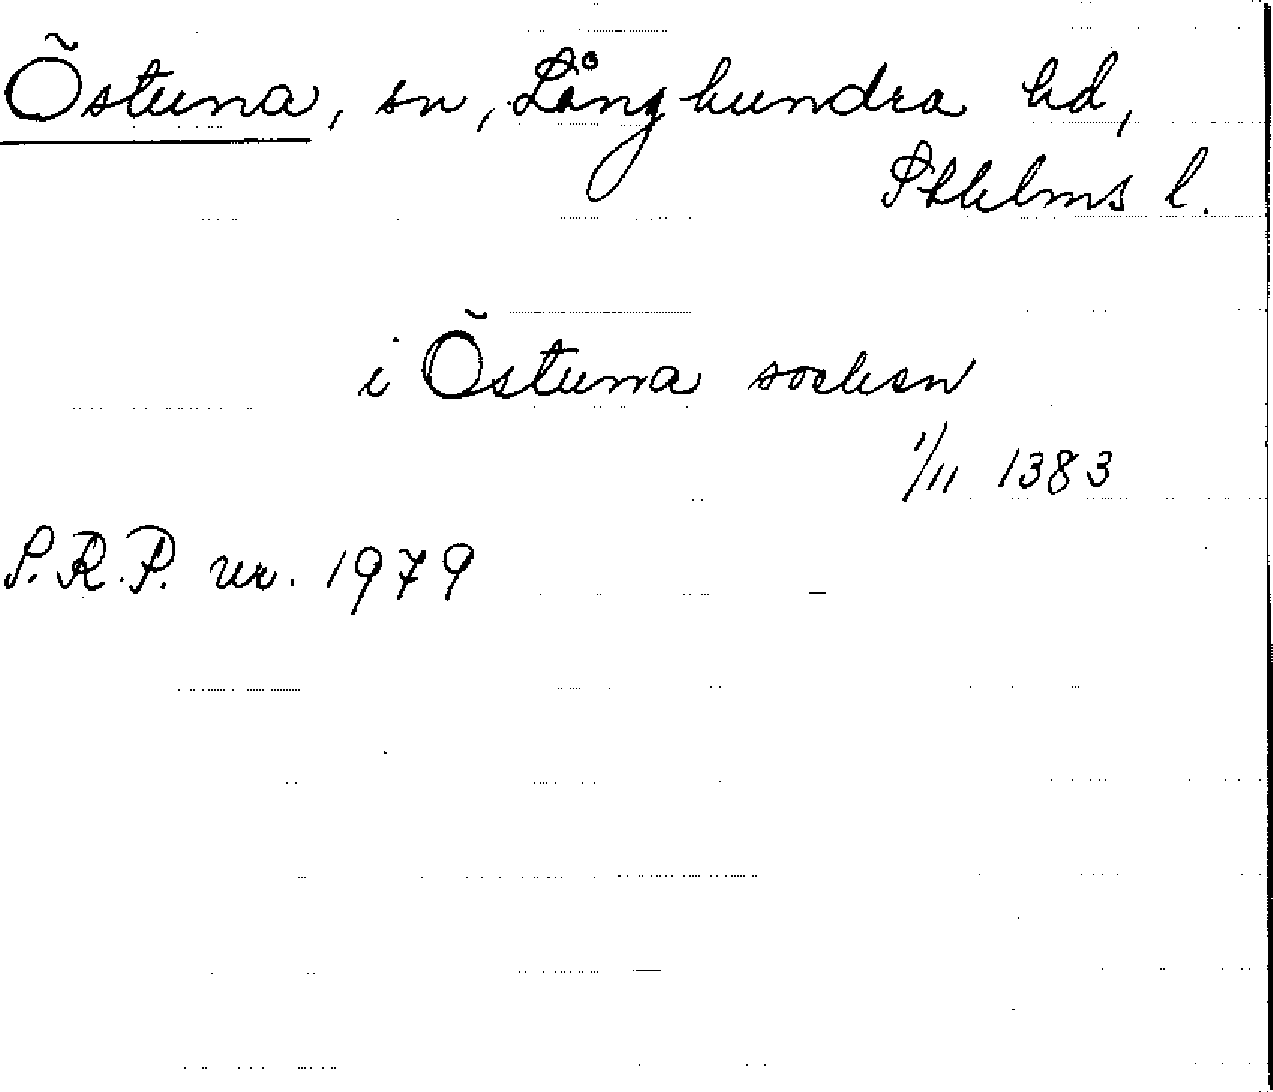 Östuna, sn, Långhundra hd,
Sthlms l.
i Östuna soclisn
1/11 1383
S.R.P. nr. 1979